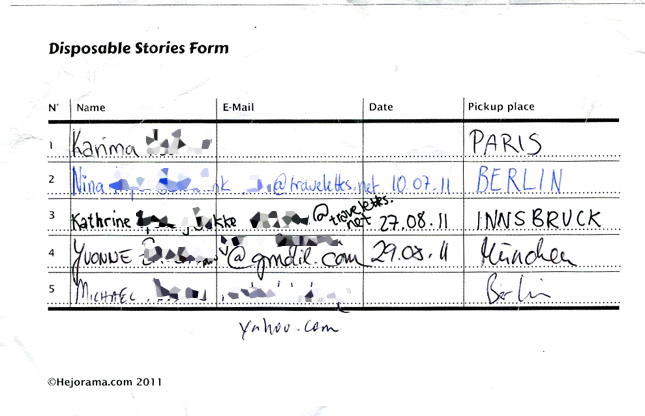 Disposable Stories Form
N° Name E-Mail Date Pickup place
1 Karima PARIS
2 Nina @travelettes.net 10.07.11 BERLIN
3 Kathrine @travelettes.net 27.08.11 INNSBRUCK
4 YVONNE @gmail.com 29.08.11 München
5 MICHAEL Berlin
yahoo.com
©Hejorama.com 2011